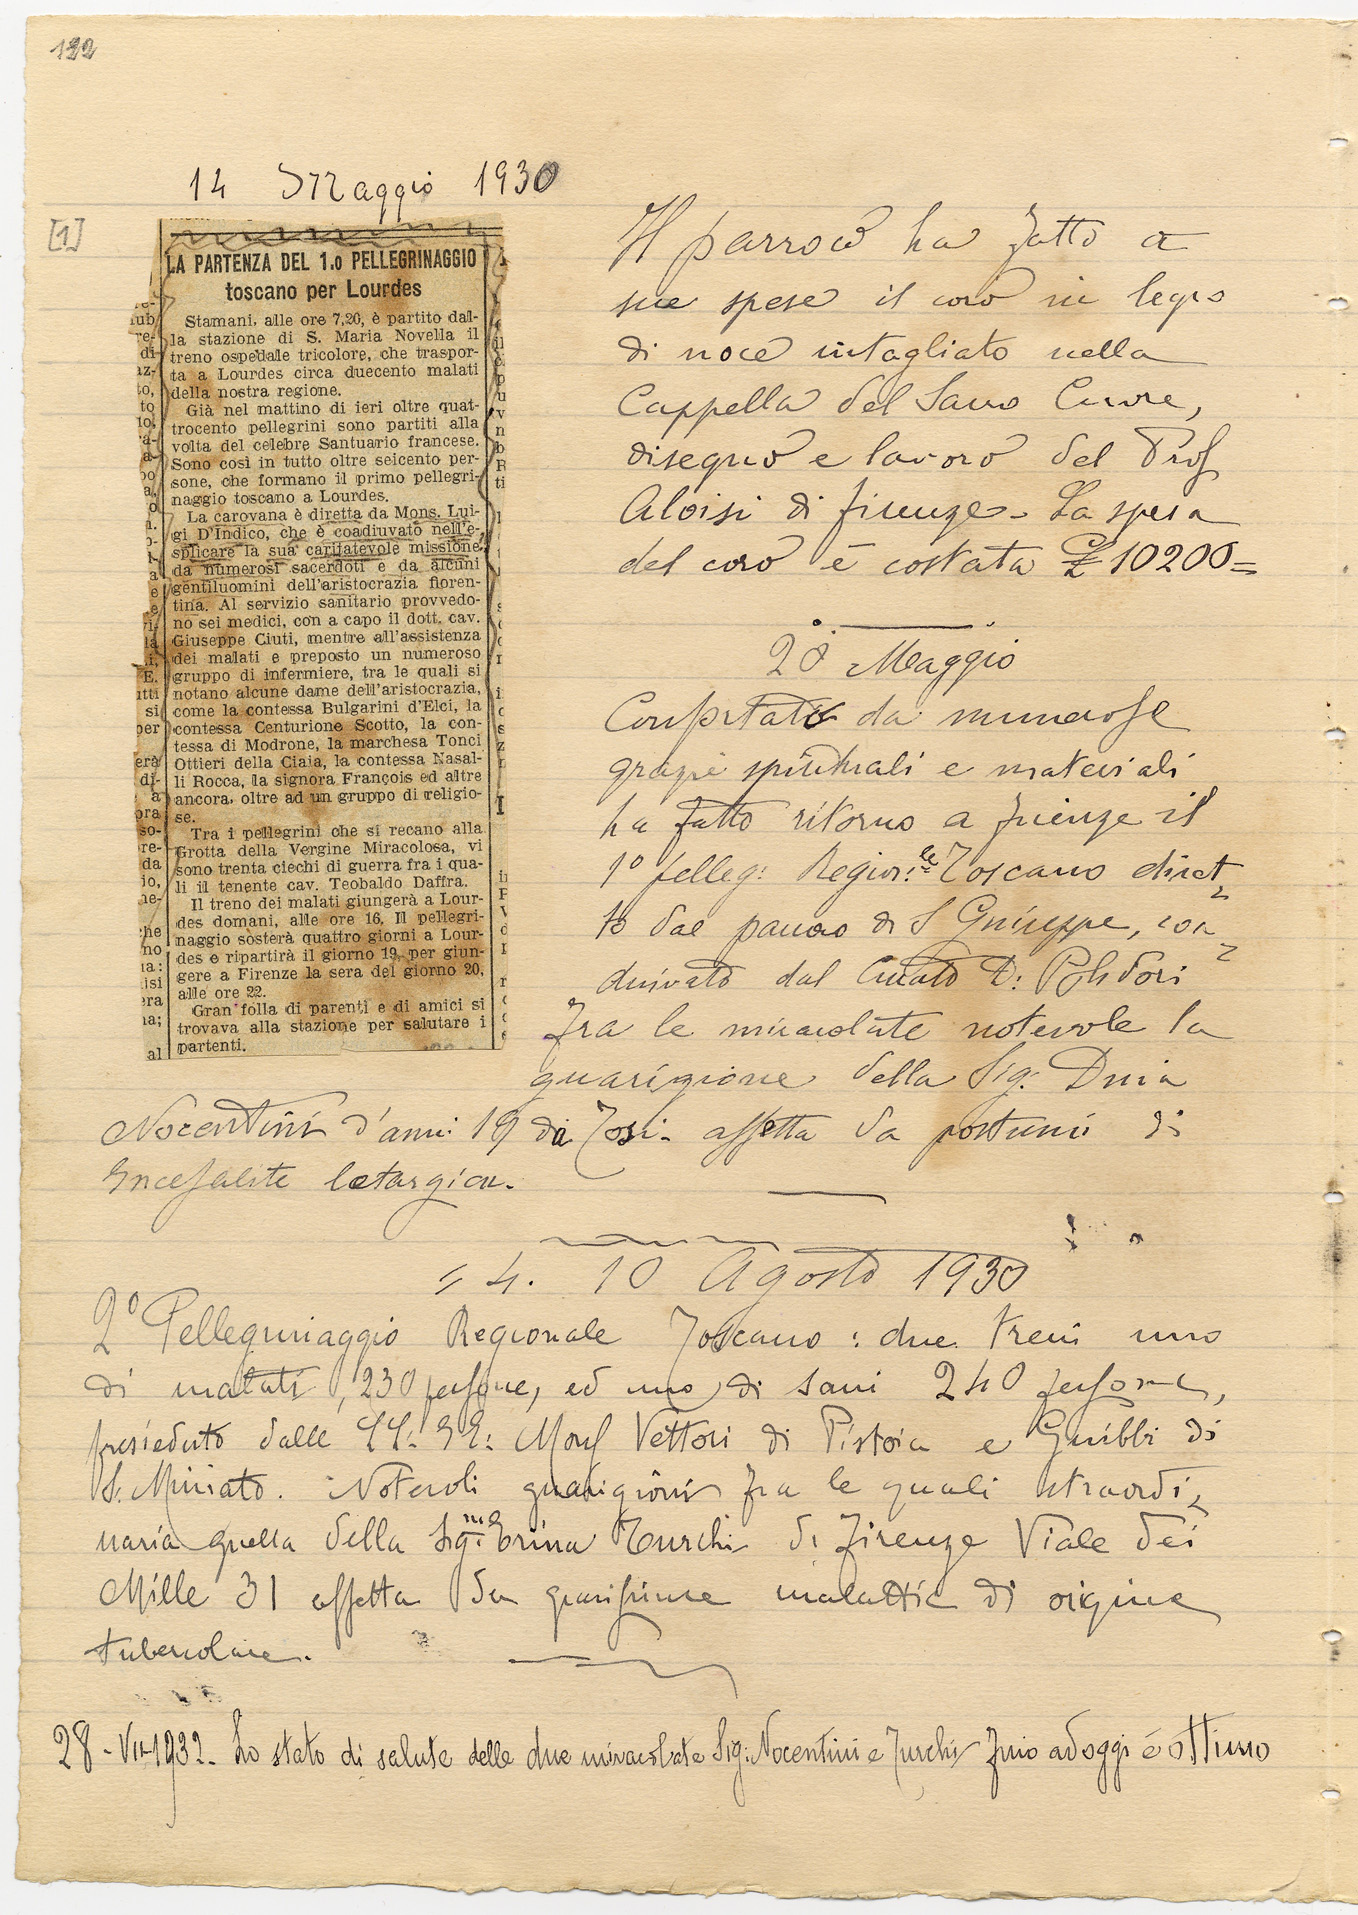 122
14 Maggio 1930
[1]
LA PARTENZA DEL 1.o PELLEGRINAGGIO
toscano per Lourdes
Stamani, alle ore 7,20, è partito dal-
la stazione di S. Maria Novella il
treno ospedale tricolore, che traspor-
ta a Lourdes circa duecento malati
della nostra regione.
Già nel mattino di ieri oltre quat-
trocento pellegrini sono partiti alla
volta del celebre Santuario francese.
Sono così in tutto oltre seicento per-
sone, che formano il primo pellegri-
naggio toscano a Lourdes.
La carovana è diretta da Mons. Lui-
gi D'Indico, che è coadiuvato nell'e-
splicare la sua caritatevole missione,
da numerosi sacerdoti e da alcuni
gentiluomini dell'aristocrazia fioren-
tina. Al servizio sanitario provvedo-
no sei medici, con a capo il dott. cav.
Giuseppe Ciuti, mentre all'assistenza
dei malati e preposto un numeroso
gruppo di infermiere, tra le quali si
notano alcune dame dell'aristocrazia,
come la contessa Bulgarini d'Elci, la
contessa Centurione Scotto, la con-
tessa di Modrone, la marchesa Tonci
Ottieri della Ciaia, la contessa Nasal-
li Rocca, la signora François ed altre
ancora, oltre ad un gruppo di religio-
se.
Tra i pellegrini che si recano alla
Grotta della Vergine Miracolosa, vi
sono trenta ciechi di guerra fra i qua-
li il tenente cav. Teobaldo Daffra.
Il treno dei malati giungerà a Lour-
des domani, alle ore 16. Il pellegri-
naggio sosterà quattro giorni a Lour-
des e ripartirà il giorno 19, per giun-
gere a Firenze la sera del giorno 20,
alle ore 22.
Gran folla di parenti e di amici si
trovava alla stazione per salutare i
partenti.
Il parroco ha fatto a
sue spese il coro in legno
di noce intagliato nella
Cappella del Sacro Cuore,
disegno e lavoro del Prof
Aloisi di firenze. La spesa
del coro è costata £ 10200=
20 Maggio
Confortato da numerose
grazie spirituali e materiali
ha fatto ritorno a firenze il
1º pelleg: Region:le Toscano diret
to dal parroco di S Giuseppe, coa
diuvato dal Curato D: Polidori
Fra le miracolate notevole la
guarigione della Sig: Dina
Nocentini d'anni 19 da Tosi. affetta da postumi di
Encefalite letargica.
4. 10 Agosto 1930
2º Pellegrinaggio Regionale Toscano: due treni uno
di malati, 230 persone, ed uno di sani 240 persone,
presieduto dalle LL: EE: Mons Vettori di Pistoia e Giubbi di
S. Miniato. Notevoli guarigioni fra le quali straordi
naria quella della Sig:na Erina Turchi di Firenze Viale dei
Mille 31 affetta da gravissima malattia di origine
tubercolare.
28-VII-1932. Lo stato di salute delle due miracolate Sig: Nocentini e Turchi fino ad oggi è ottimo